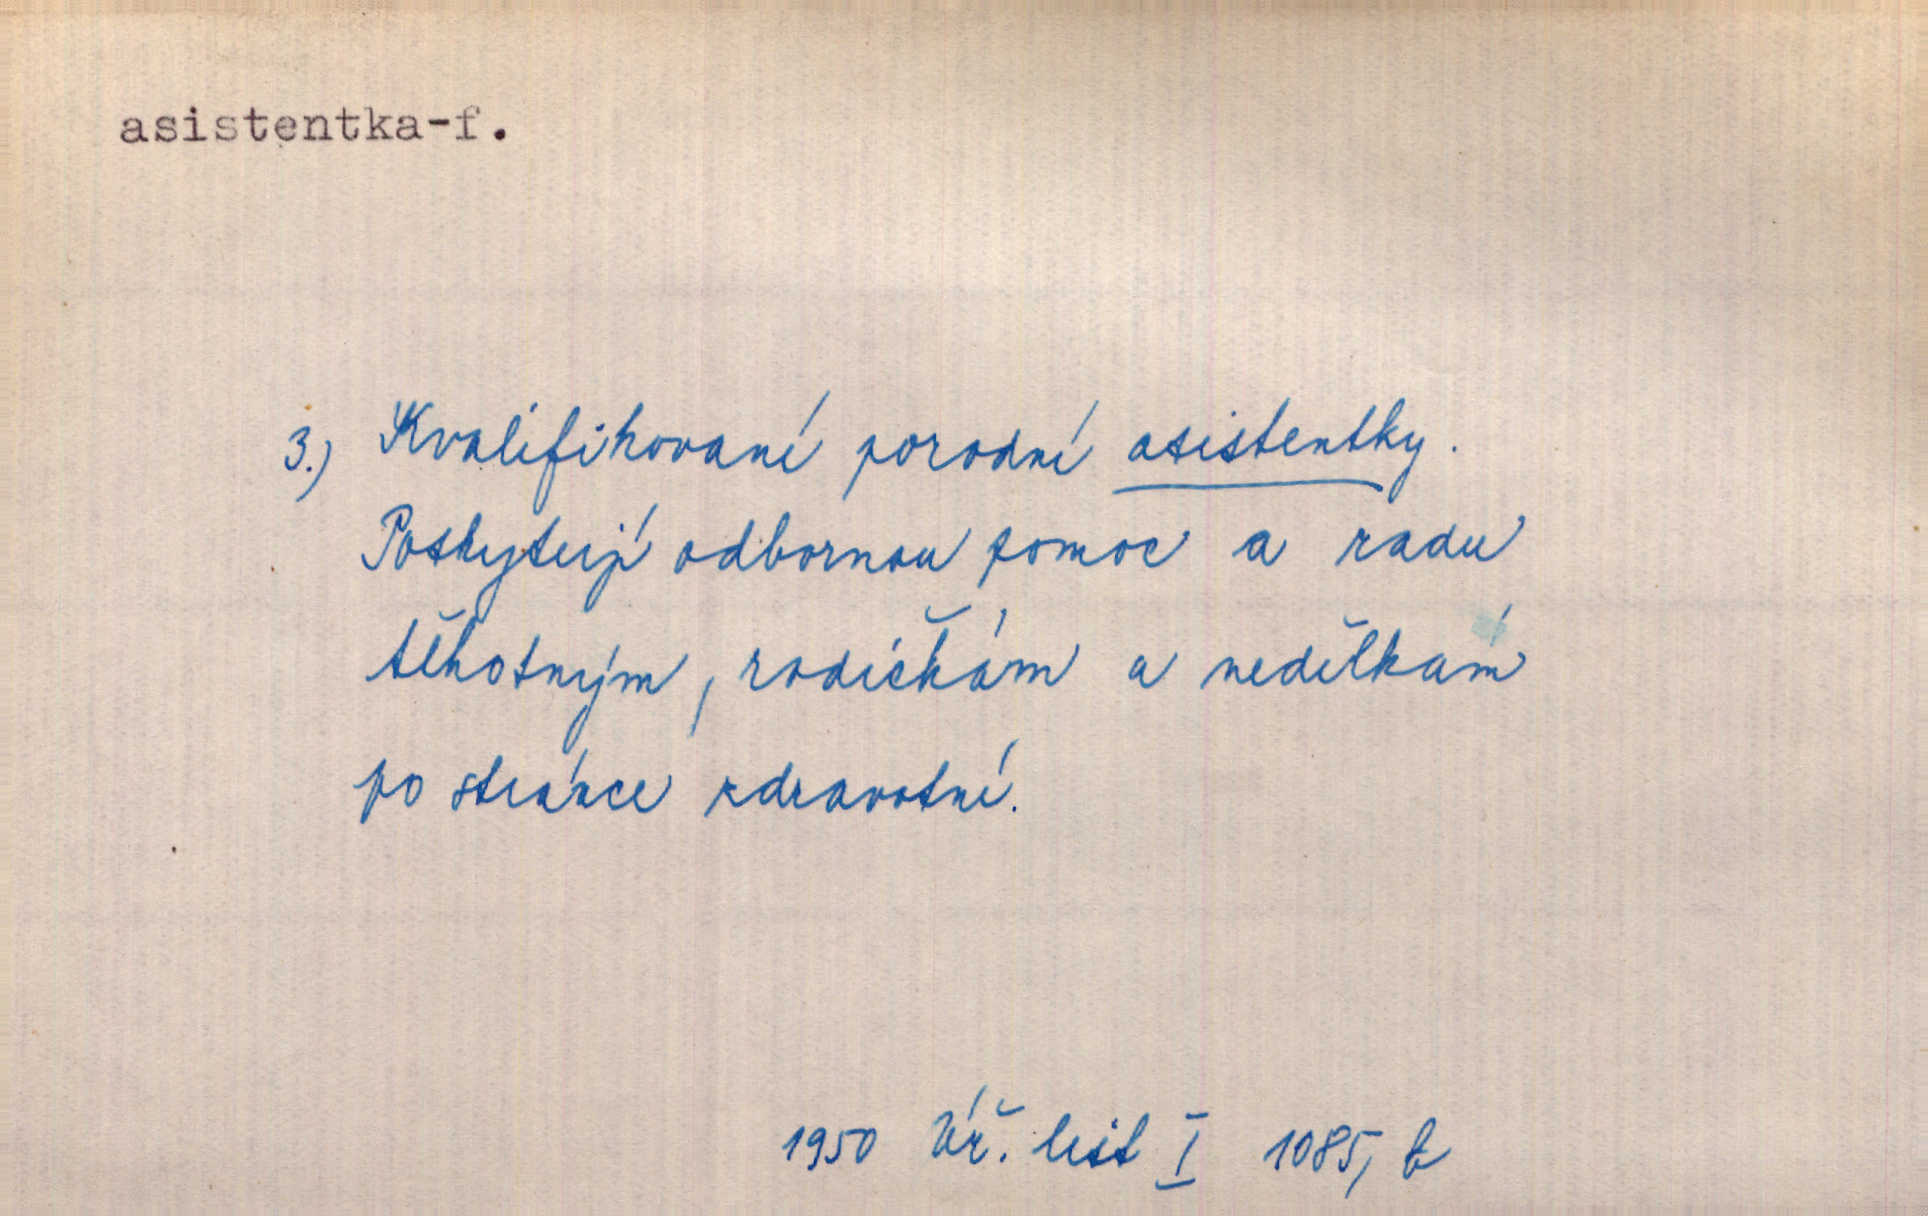 asistentka-f.
3.) Kvalifikované porodní asistentky.
Poskytují odbornou pomoc a radu
těhotným, rodičkám a nedělkám
po stránce zdravotní.
1950 Úř. list I 1085, b